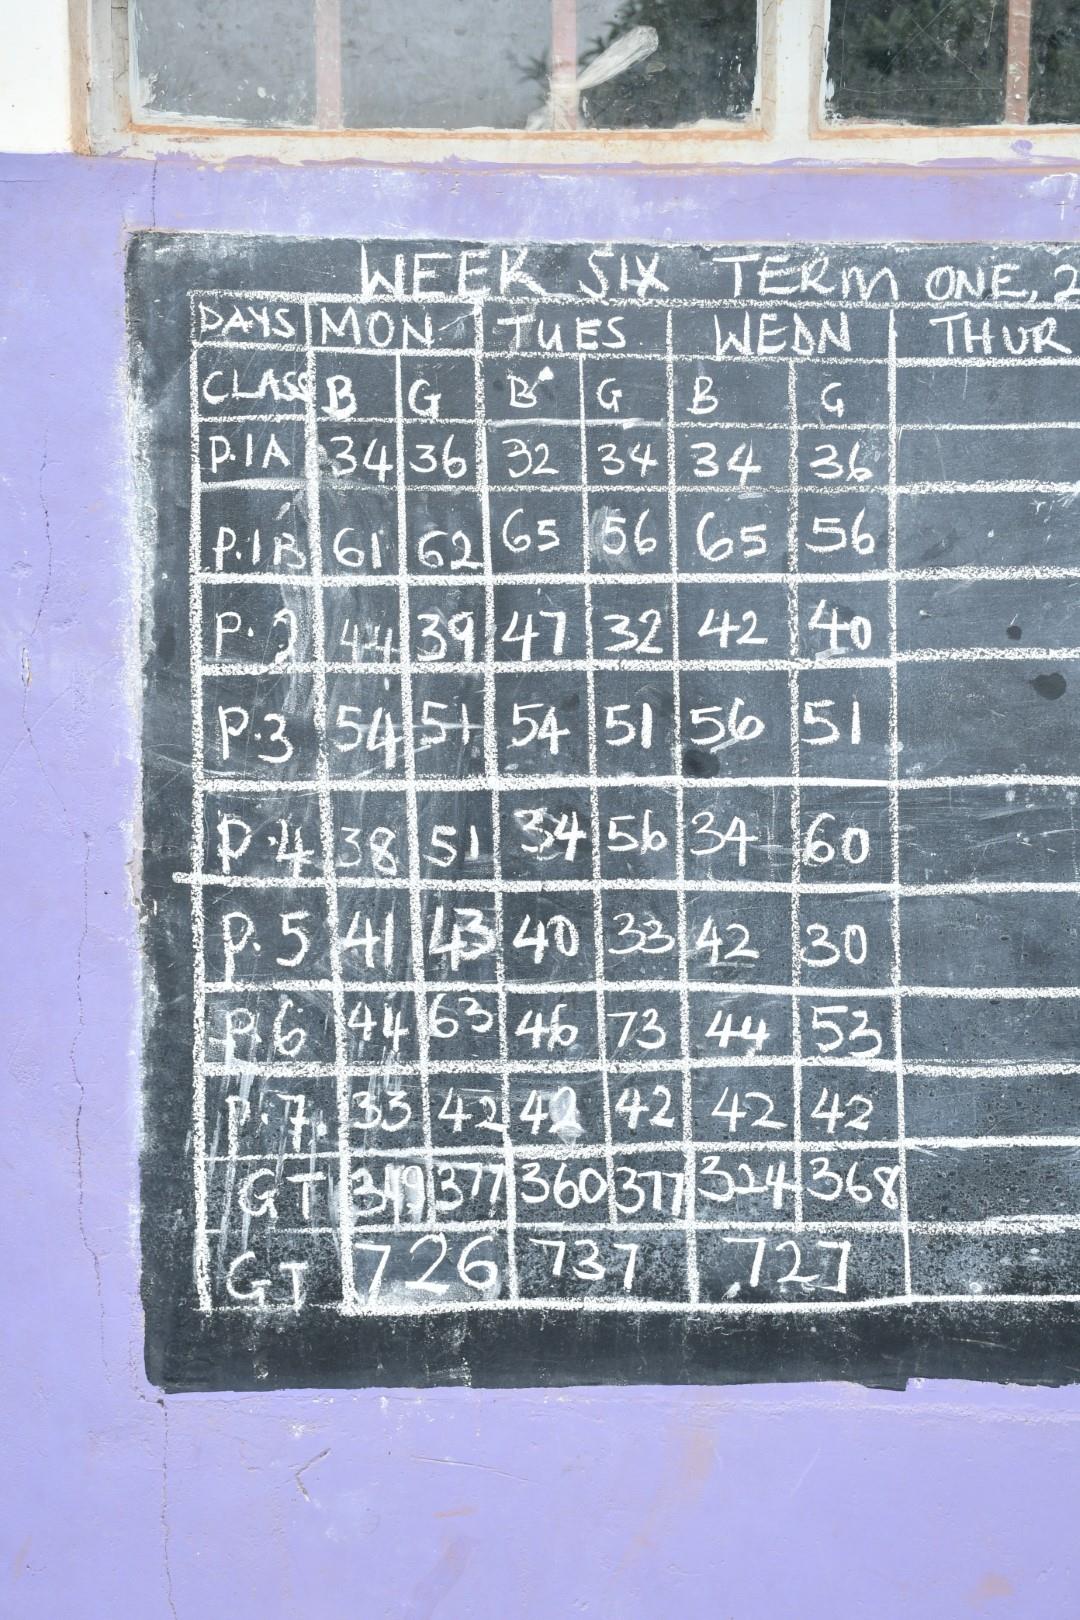 WEEK SIX TERM ONE, 2
DAYS MON TUES WEDN THUR
CLASS B G B G B G
P.1A 34 36 32 34 34 36
P.1B 61 62 65 56 65 56
P.2 44 39 47 32 42 40
P.3 54 51 54 51 56 51
P.4 38 51 34 56 34 60
P.5 41 43 40 33 42 30
P.6 44 63 46 73 44 53
P.7 33 42 42 42 42 42
GT 349 377 360 377 324 368
GT 726 737 727